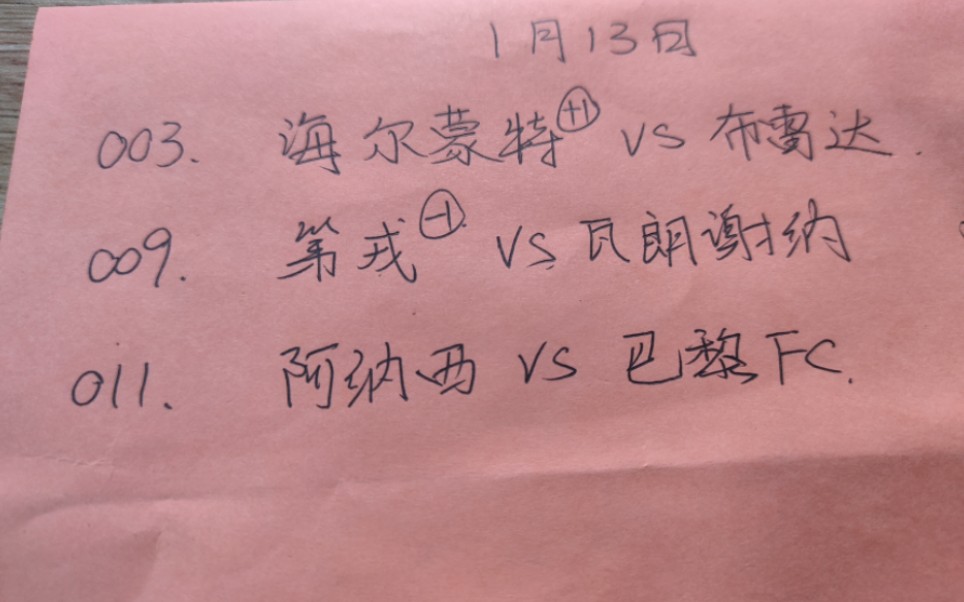 1月13日
003. 海尔蒙特(+1) VS 布雷达.
009. 第戎(-1) VS 瓦朗谢纳
011. 阿纳西 VS 巴黎FC.